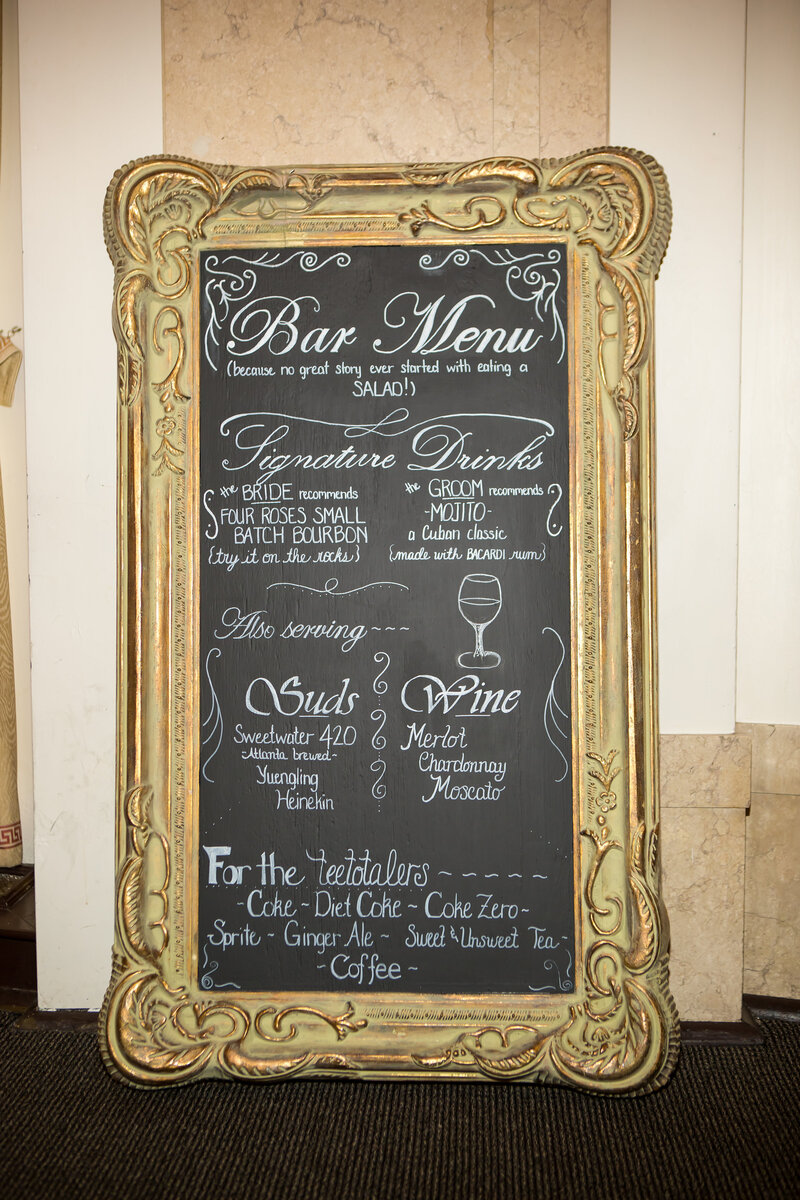 Bar Menu
(because no great story ever started with eating a
SALAD!)
Signature Drinks
the BRIDE recommends
FOUR ROSES SMALL
BATCH BOURBON
{try it on the rocks}
the GROOM recommends
-MOJITO-
a Cuban classic
{made with BACARDI rum}
Also serving ~~~
Suds
Sweetwater 420
-Atlanta brewed-
Yuengling
Heinekin
Wine
Merlot
Chardonnay
Moscato
For the teetotalers ~ ~ ~ ~ ~
-Coke ~ Diet Coke ~ Coke Zero~
Sprite ~ Ginger Ale ~ Sweet & Unsweet Tea~
~Coffee~